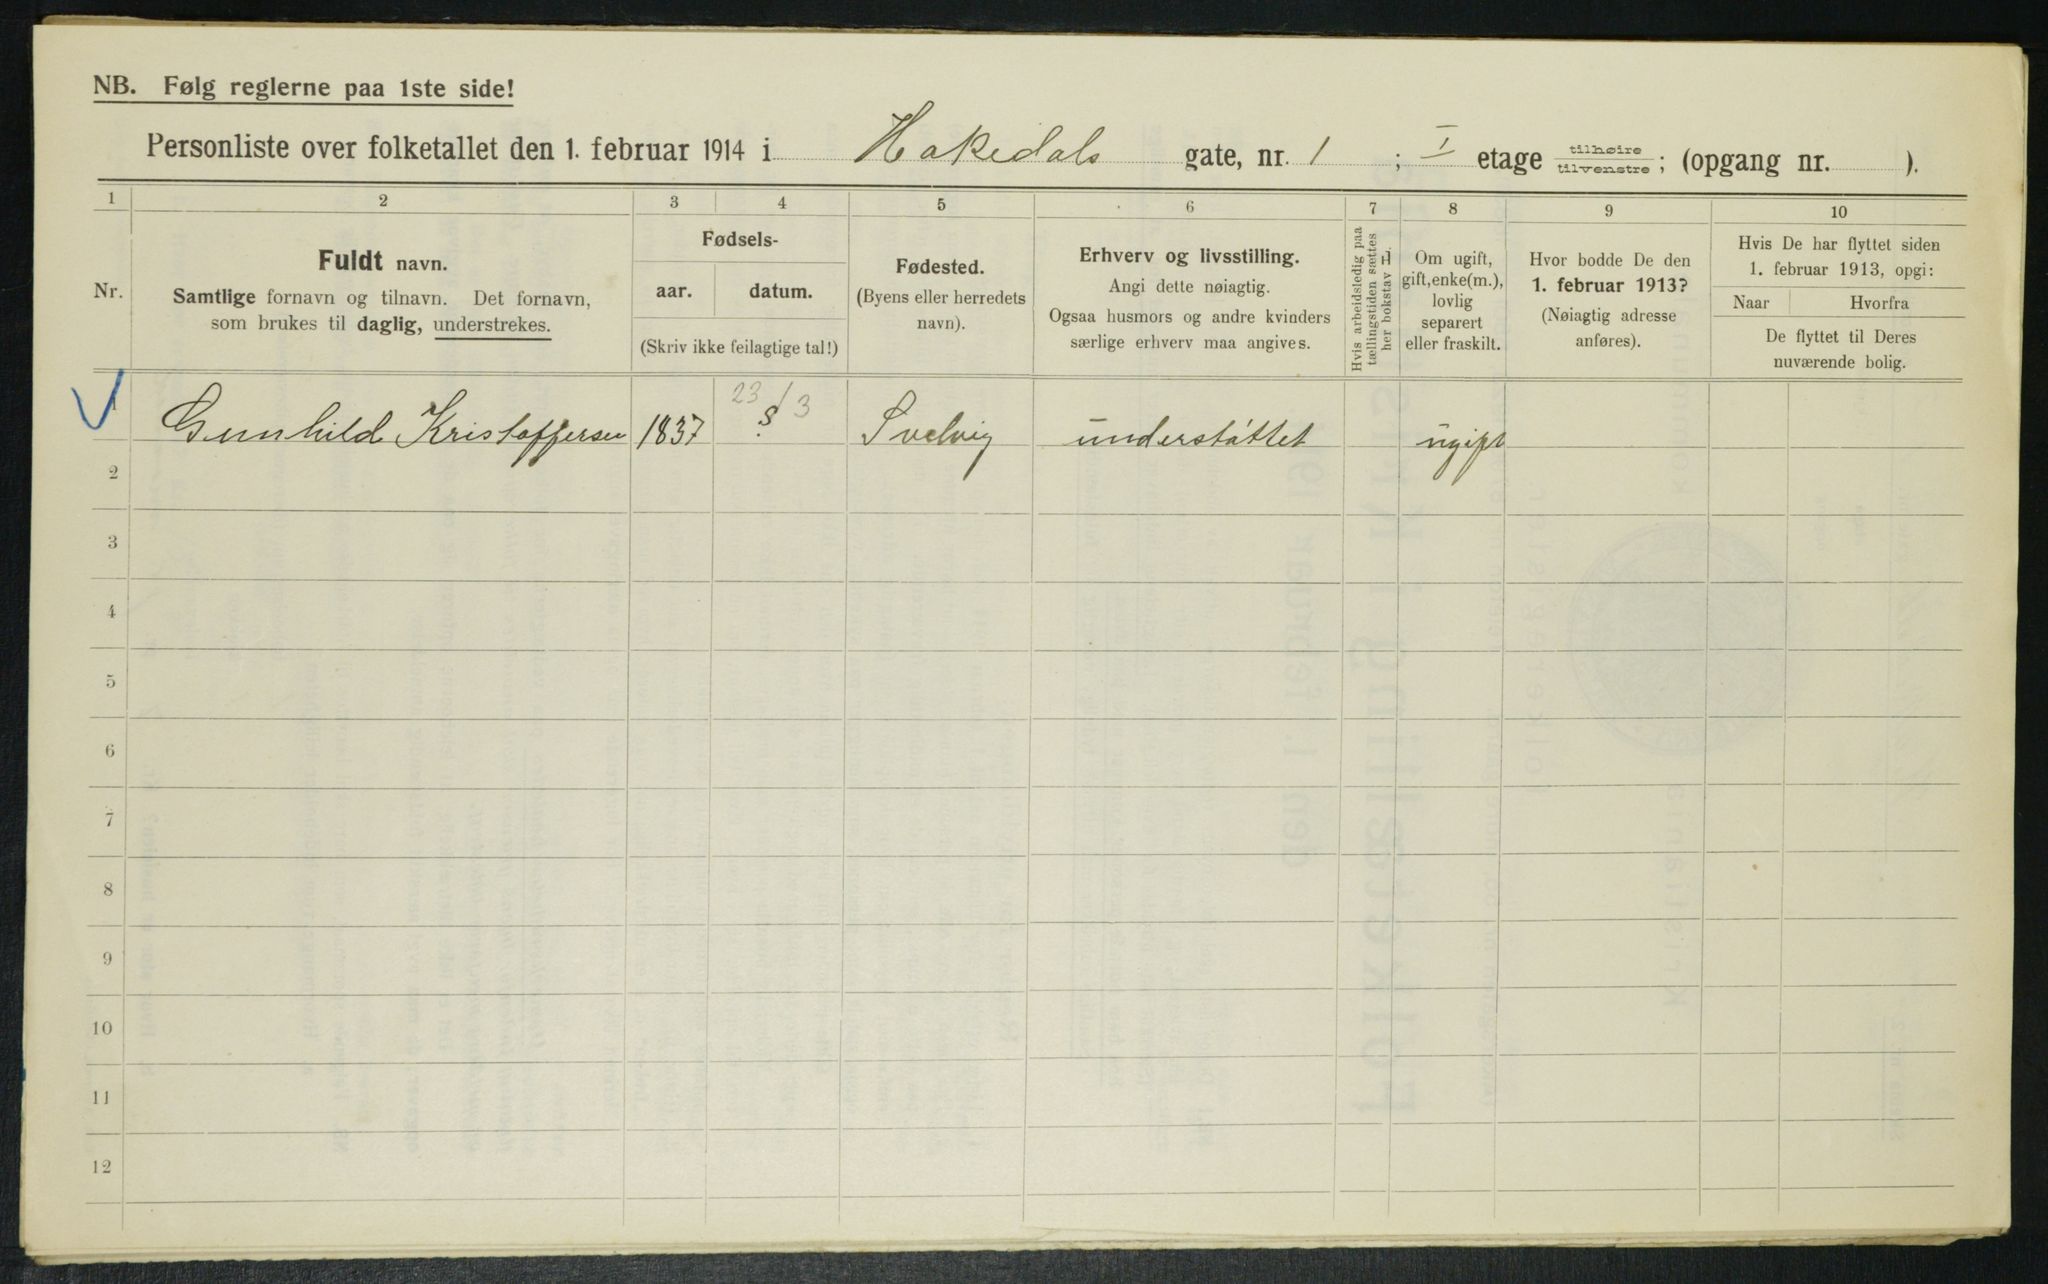 NB. Følg reglerne paa 1ste side!
Personliste over folketallet den 1. februar 1914 i Hakedals gate, nr. 1 ; I etage tilhøire/tilvenstre; (opgang nr. ).
1 2 3 4 5 6 7 8 9 10
Nr.
Fuldt navn.
Samtlige fornavn og tilnavn. Det fornavn,
som brukes til daglig, understrekes.
Fødsels-
aar. datum.
(Skriv ikke feilagtige tal!)
Fødested.
(Byens eller herredets
navn).
Erhverv og livsstilling.
Angi dette nøiagtig.
Ogsaa husmors og andre kvinders
særlige erhverv maa angives.
Hvis arbeidsledig paa
tællingstiden sættes
her bokstav L.
Om ugift,
gift, enke(m.),
lovlig
separert
eller fraskilt.
Hvor bodde De den
1. februar 1913?
(Nøiagtig adresse
anføres).
Hvis De har flyttet siden
1. februar 1913, opgi:
Naar Hvorfra
De flyttet til Deres
nuværende bolig.
1 Gunhild Kristoffersen 1837 23/3 ? Svelvig understáttet ugift
2
3
4
5
6
7
8
9
10
11
12